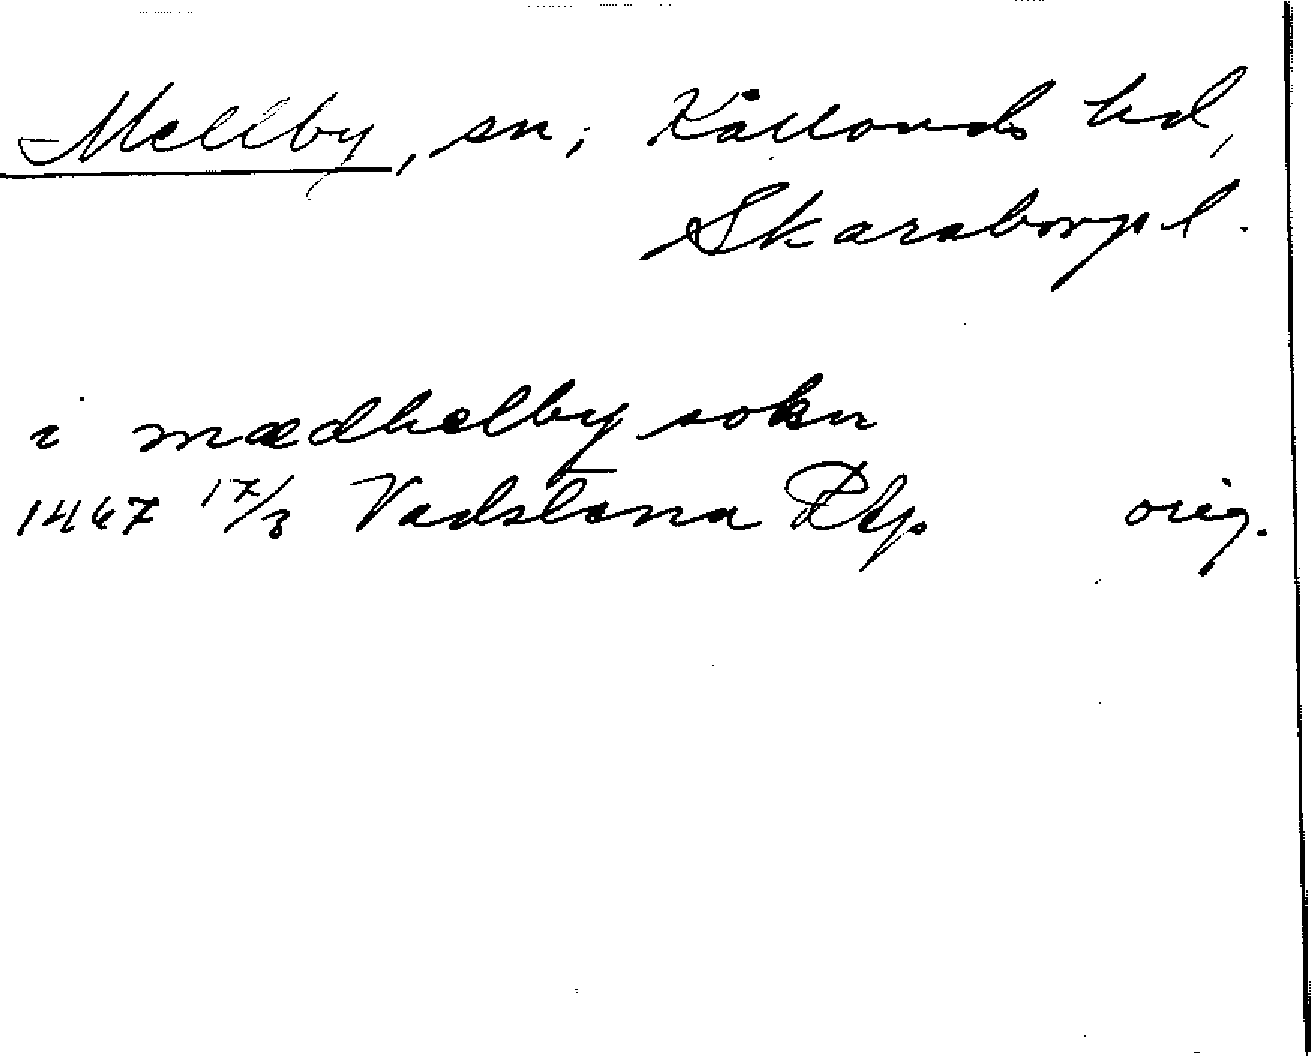 Mellby, sn, Kållands hd,
Skaraborgs l.
i mædhelby sokn
1467 17/3 Vadstena RAp orig.